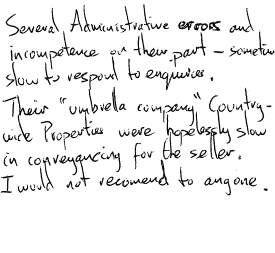 Several Administrative errors and
incompetence on their part – sometimes
slow to respond to enquiries.
Their "umbrella company" Country-
wide Properties were hopelessly slow
in conveyancing for the seller.
I would not recomend to anyone.